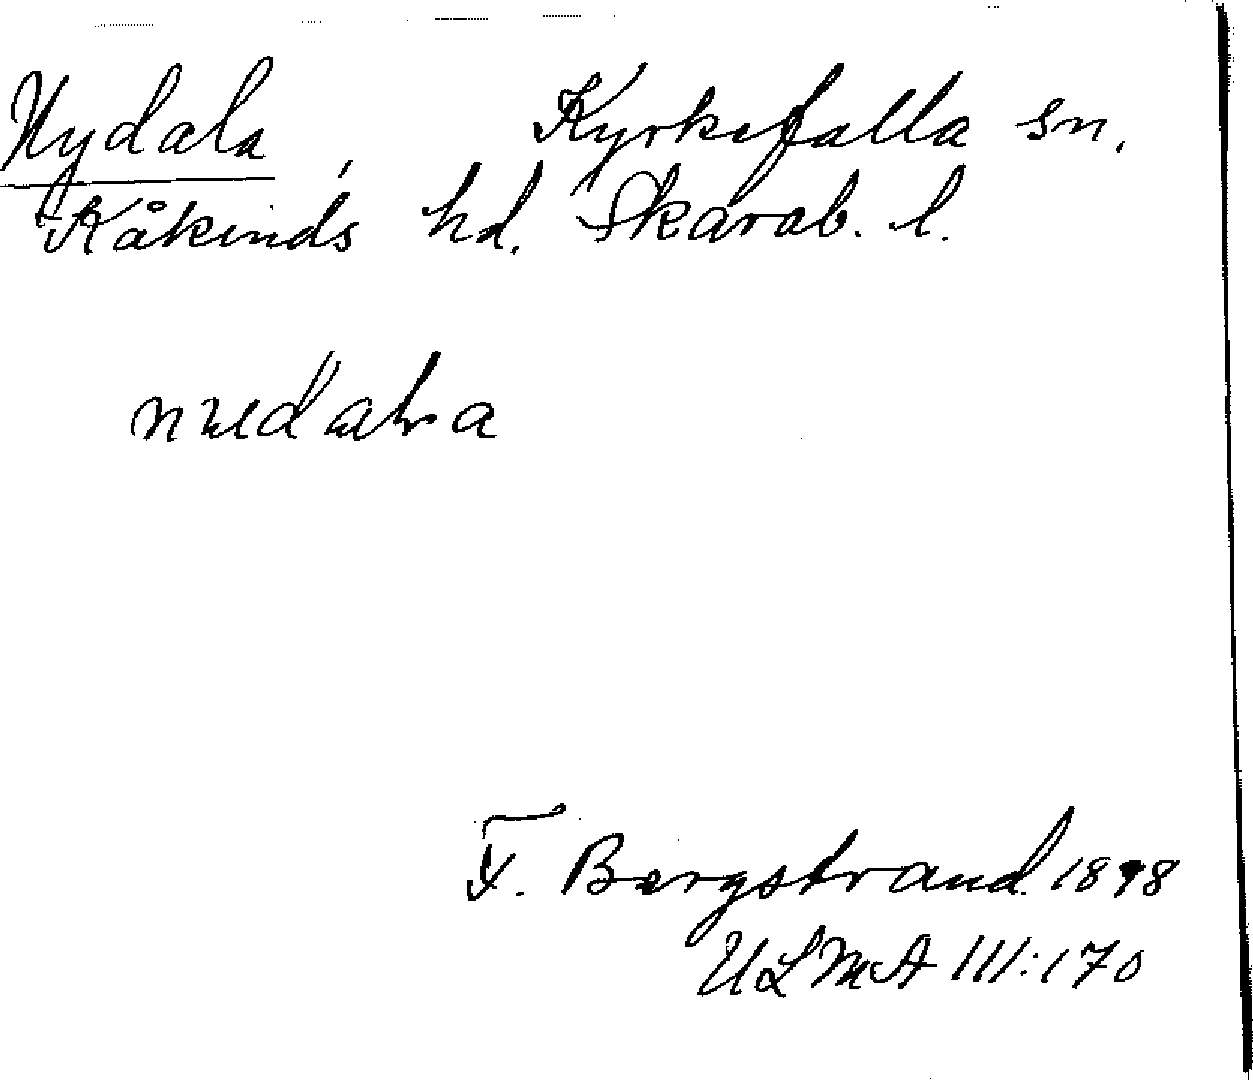 Nydala, Kyrkefalla sn.
Kåkinds hd. Skarab. l.
F. Bergstrand 1898
ULMA 111:170